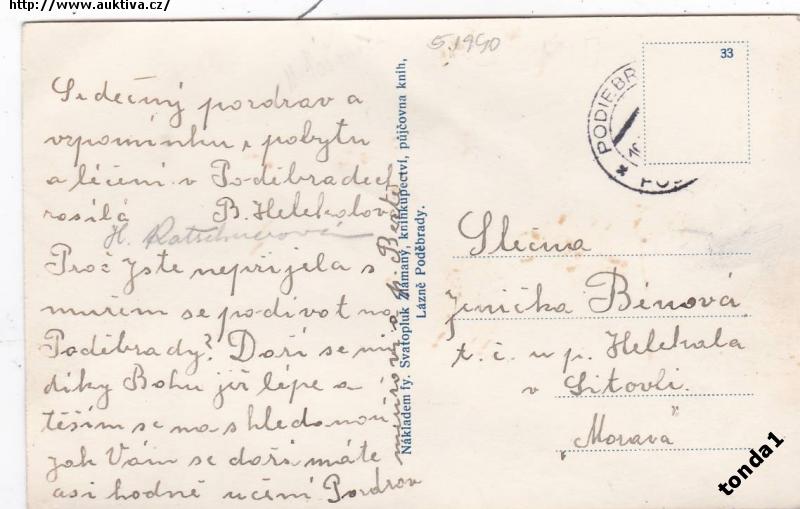 http://www.auktiva.cz/
5.1940
33
PODIEBR
Srdečný pozdrav a
vzpomínku z pobytu
a léčení v Poděbradech
zasílá B. Helekalov
H.
Proč jste nepřijela s
mužem se podívat na
Poděbrady? Daří se mi
díky Bohu již lépe a
těším se na shledanou
jak Vám se daří máte
asi hodně učení Pozdrav
Nákladem fy. Svatopluk Zlámaný, knihkupectví, půjčovna knih,
Lázně Poděbrady.
Slečna
Jenička Bénová
t. č. u p. Helekala
v Litovli.
„Morava"
tonda1